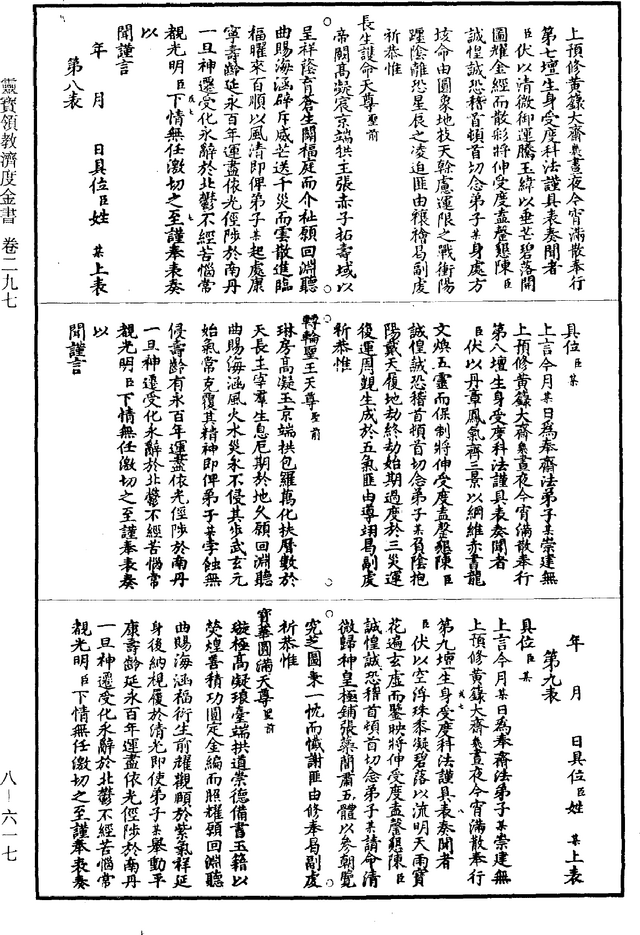 上預修黃籙大齋幾晝夜今宵滿散奉行
第七壇生身受度科法謹具表奏聞者
臣伏以清微御運騰玉緯以垂芒碧落開
圖耀金經而散形將伸受度盍罄懇陳臣
誠惶誠恐稽首頓首切念弟子某身處方
垓命由圓象地枝天榦慮運限之戰衝陽
躔陰離恐星辰之凌迫匪由禳禬曷副虔
祈恭惟
長生護命天尊聖前
帝闕高凝宸京端拱主張赤子拓壽域以
呈祥蔭育蒼生開福庭而介祉願回淵聽
曲賜海涵辟斥咸芒送千災而雲散進臨
福曜來百順以風清即俾弟子某起處康
寧壽齡延永百年運盡依光徑陟於南丹
一旦神遷受化永辭於北鬱不經苦惱常
覩光明臣下情無任激切之至謹奉表奏
以
聞謹言
年 月 日具位臣姓 某上表
第八表
具位臣某
上言今月某日為奉齋法弟子某崇建無
上預修黃籙大齋幾晝夜今宵滿散奉行
第八壇生身受度科法謹具表奏聞者
臣伏以丹章鳳氣齊三景以綱維赤書龍
文煥五靈而保制將伸受度盍罄懇陳臣
誠惶誠恐稽首頓首切念弟子某負陰抱
陽戴天復地劫終劫始期過度於三災運
復運周覬生成於五氣匪由導翊曷副虔
祈恭惟
轉輪聖王天尊聖前
琳房高凝玉京端拱包羅萬化扶曆數於
天長主宰羣生息厄期於地久願回淵聽
曲賜海涵風火水災永不侵其步武玄元
始氣常克復其精神即俾弟子某孛蝕無
侵壽齡有永百年運盡依光徑陟於南丹
一旦神遷受化永辭於北鬱不經苦惱常
覩光明臣下情無任激切之至謹奉表奏
以
聞謹言
年 月 日具位臣姓 某上表
第九表
具位臣某
上言今月某日為奉齋法弟子某崇建無
上預修黃籙大齋幾晝夜今宵滿散奉行
第九壇生身受度科法謹具表奏聞者
臣伏以空浮珠黍凝碧落以流明天雨寶
花遍玄虛而鑒映將伸受度盍罄懇陳臣
誠惶誠恐稽首頓首切念弟子某請命清
微歸神皇極鋪張蘂簡肅五體以參朝覽
究之圖秉一忱而懺謝匪由修奉曷副虔
祈恭惟
寶華圓滿天尊聖前
璇極高凝琅臺端拱道崇德備書玉籍以
熒煌善積功圓定金編而照耀願回淵聽
曲賜海涵福衍生前耀觀頤於紫氣祥延
身後納視履於清光即使弟子某舉動平
康壽齡延永百年運盡依光徑陟於南丹
一旦神遷受化永辭於北鬱不經苦惱常
覩光明臣下情無任激切之至謹奉表奏
靈寶領教濟度金書 卷二九七
八-六一七